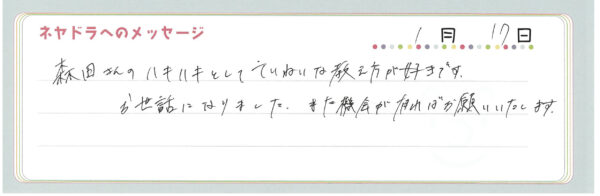 ネヤドラへのメッセージ
1月 17日
森田さんのハキハキとしてていねいな教え方が好きです。
お世話になりました。また機会が有ればお願いいたします。